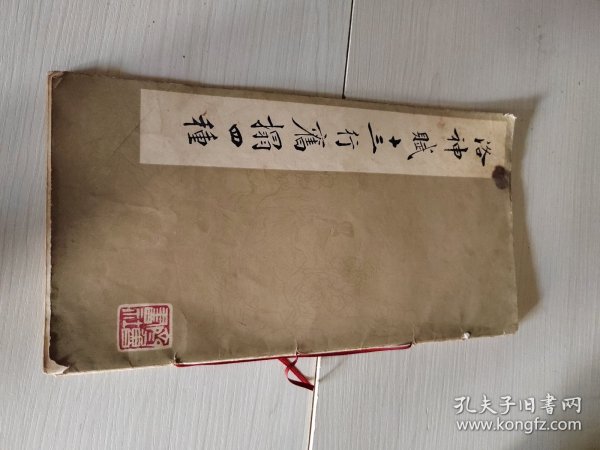 洛神賦十三行舊搨四種
孔夫子旧書网
www.kongfz.com